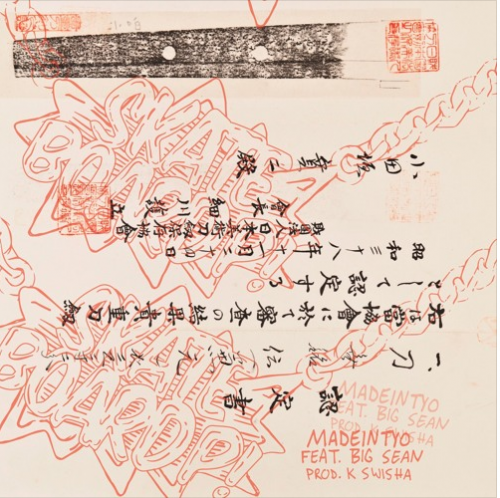 SKATE
BOARD P
認定書
一、刀
右は當協會に於て審査の結果貴重刀劔
として認定する
昭和三十八年十一月二十四日
財團法人日本美術刀劔保存協會
會長 細川護立
殿
SKATE
BOARD P
MADEINTYO
FEAT. BIG SEAN
PROD. K SWISHA
MADEINTYO
FEAT. BIG SEAN
PROD. K SWISHA